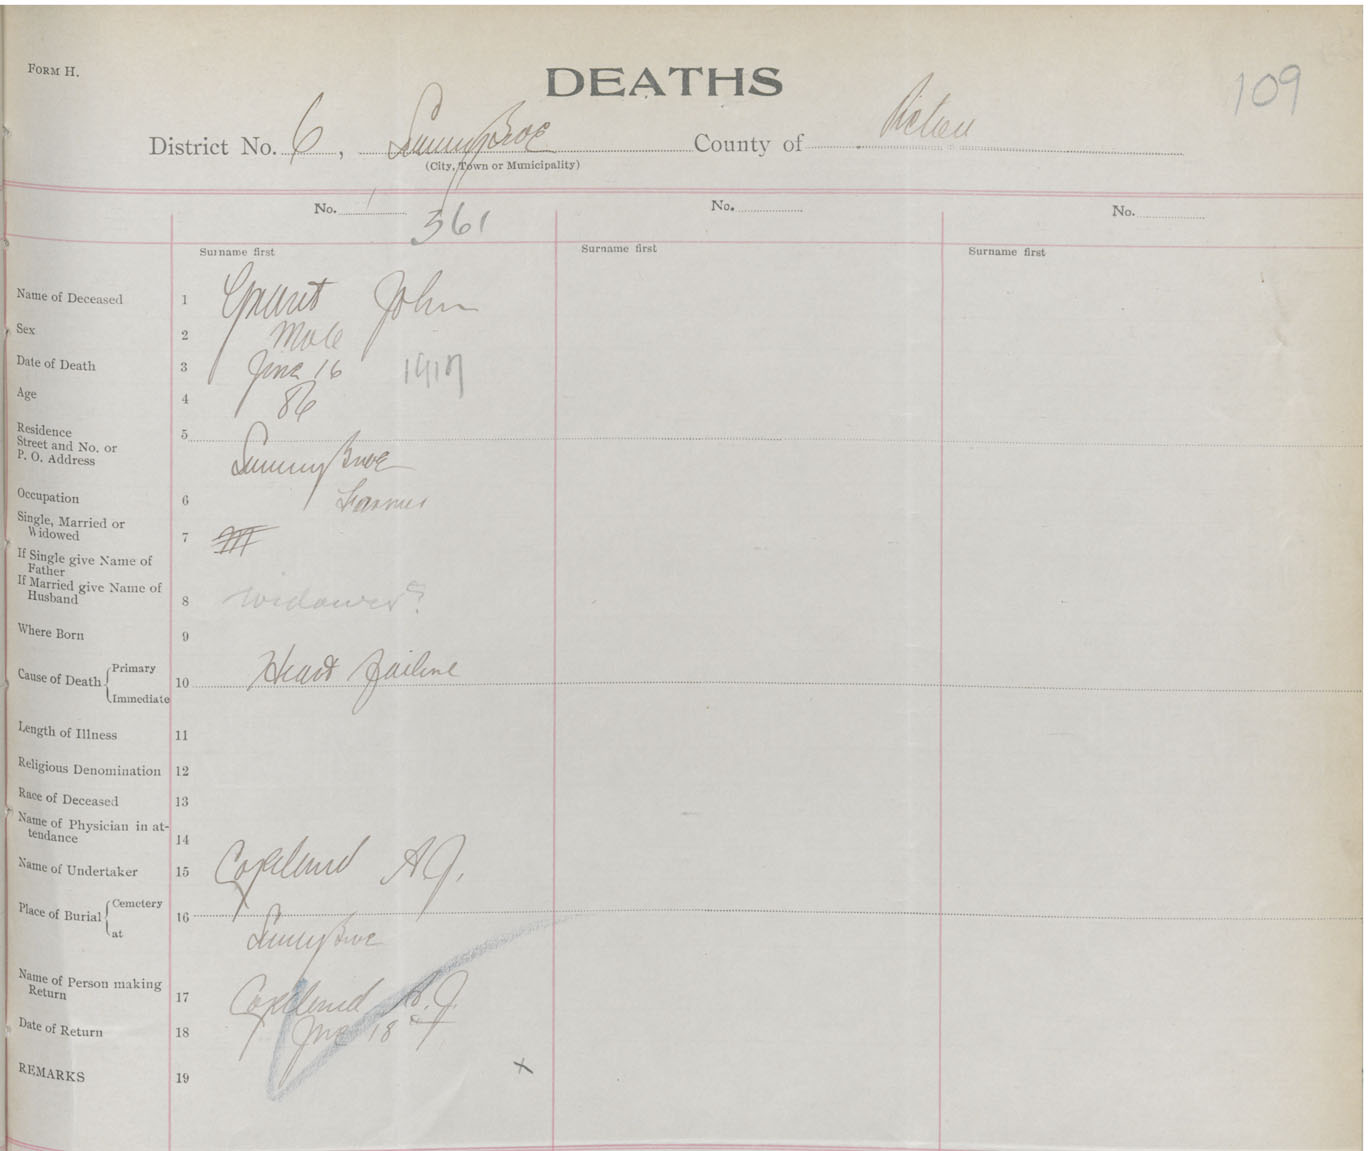 FORM H.
DEATHS
109
District No. 6, SunnyBrae County of Pictou
(City, Town or Municipality)
No. 1 No. No.
361
Surname first Surname first Surname first
Name of Deceased 1 Grant John
Sex 2 Male
Date of Death 3 June 16 1917
Age 4 86
Residence
Street and No. or
P. O. Address 5 SunnyBrae
Occupation 6 Farmer
Single, Married or
Widowed 7
If Single give Name of
Father
If Married give Name of
Husband 8 Widower?
Where Born 9
Cause of Death Primary
Immediate 10 Heart Failure
Length of Illness 11
Religious Denomination 12
Race of Deceased 13
Name of Physician in at-
tendance 14
Name of Undertaker 15 Copeland A.J.
Place of Burial Cemetery
at 16 SunnyBrae
Name of Person making
Return 17 Copeland A.J.
Date of Return 18 June 18
REMARKS 19 x